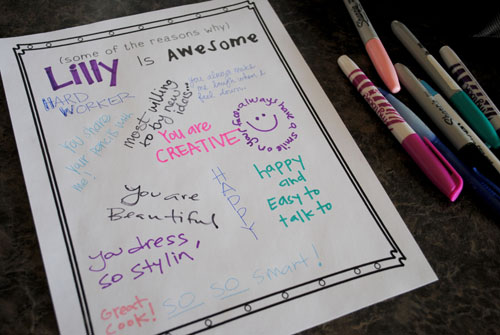 (some of the reasons why)
Lilly Is AWesome
HARD
WORKER
most willing
to by new
ideas...
you always make
me laugh when I
feel down.
You share
your
me!
You are
CREATIVE
you always have a smile on your face
You are
Beautiful
HAPPY
happy
and
Easy to
talk to
you dress,
so stylin'
Great
cook!
so so smart!
Sharpie